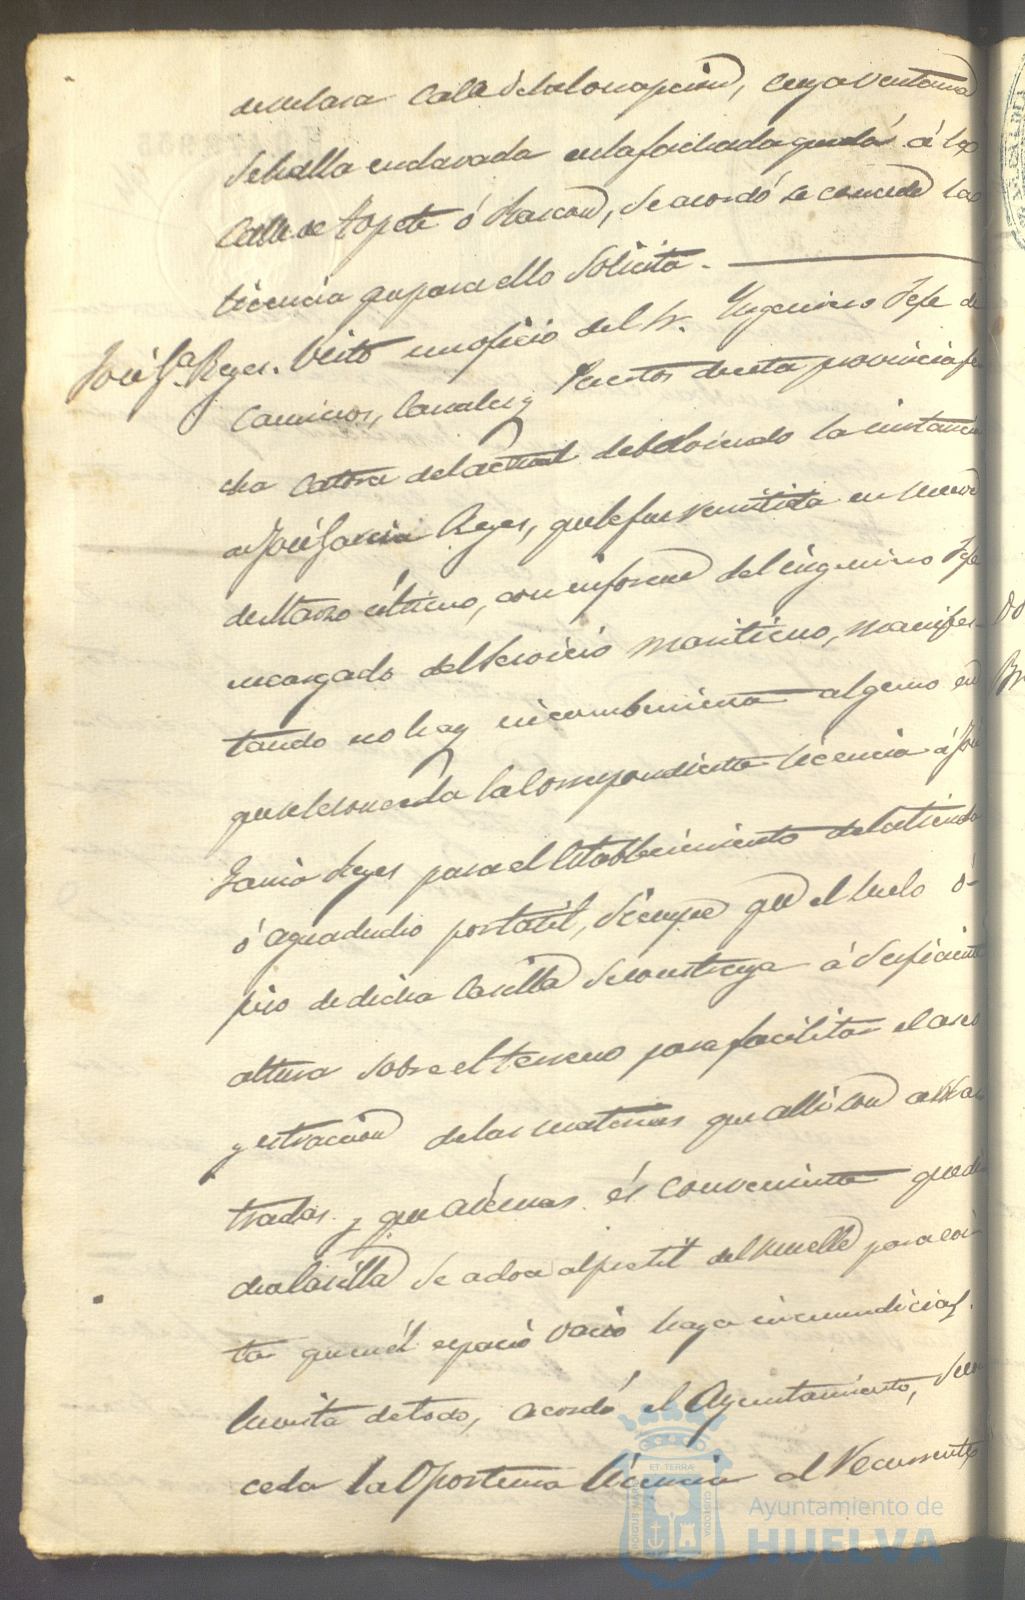 de es la sa Calle de la Concepcion, cuya ventana
se halla enclavada en la fachada que dá á la
Calle de Topete ó Rascon, se acordó se concede la
licencia que para ello solicita.
José Ga. Reyes. Visto un oficio del Sr. Yngeniero Jefe de
Caminos, Canales y Puertos de esta provincia fe
cha catorce del actual debolviendo la instancia
de José Garcia Reyes, que le fue remitida en nueve
de Marzo ultimo, con informe del ingeniero Jefe
encargado del servicio maritimo, manifes-
tando no hay incombeniente alguno en
que se le conceda la correspondiente licencia á José
Garcia Reyes para el establecimiento de la tienda
ó aguaducho portatil, siempre que el suelo ó
piso de dicha Casilla se construya á suficiente
altura sobre el terreno para facilitar el aseo
y estracion de las materias que alli son arras
tradas y que ademas és conveniente que di
cha Casilla se adose al pretil del muelle para evi
tar que en él espacio vacio haya inmundicias.
En vista de todo, acordó el Ayuntamiento, se con
ceda la Oportuna licencia al recurrente
ET TERRÆ
CUSTODIA
Ayuntamiento de
HUELVA